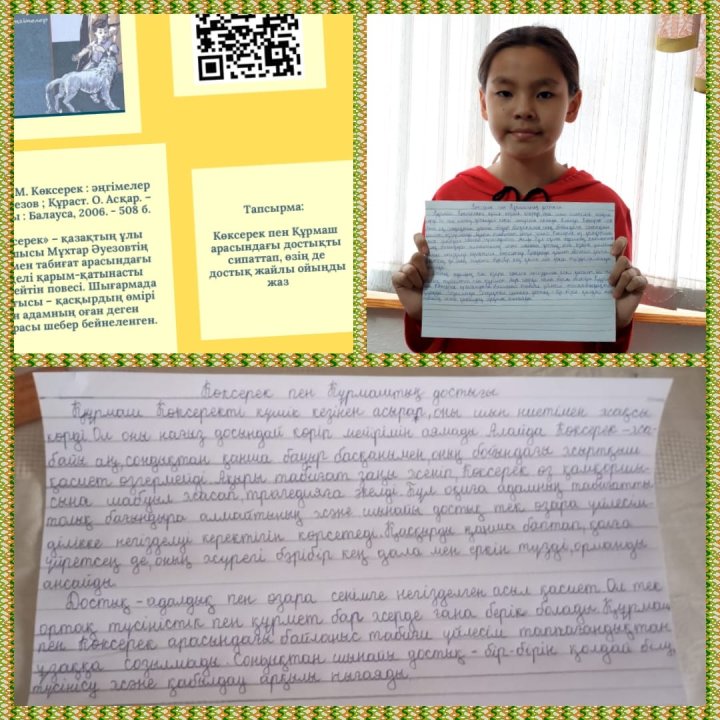 М. Көксерек : әңгімелер
езов ; Құраст. О. Асқар. –
ы : Балауса, 2006. - 508 б.
серек» – қазақтың ұлы
пысы Мұхтар Әуезовтің
мен табиғат арасындағы
делі қарым-қатынасты
ейтін повесі. Шығармада
тысы – қасқырдың өмірі
н адамның оған деген
расы шебер бейнеленген.
Тапсырма:
Көксерек пен Құрмаш
арасындағы достықты
сипаттап, өзің де
достық жайлы ойыңды
жаз
Көксерек пен Құрмаштың достығы
Құрмаш Көксеректі күшік кезінен асырап, оны шын ниетімен жақсы
көрді. Ол оны нағыз досындай көріп мейірімін аямады. Алайда Көксерек – жа-
байы аң, сондықтан қанша бауыр басқанымен, оның бойындағы жыртқыш
қасиет өзгермейді. Ақыры табиғат заңы жеңіп, Көксерек өз қамқоршы-
сына шабуыл жасап, трагедияға әкелді. Бұл оқиға адамның табиғатты
толық бағындыра алмайтының және шынайы достық тек өзара үйлесім-
ділікке негізделуі керектігін көрсетеді. Қасқырды қанша бақтап, қолға
үйретсең де, оның жүрегі бәрібір кең дала мен еркін түзді, орманды
аңсайды.
Достық – адалдық пен өзара сенімге негізделген асыл қасиет. Ол тек
ортақ түсіністік пен құрмет бар жерде ғана берік болады. Құрмаш
пен Көксерек арасындағы байланыс табиғи үйлесім таппағандықтан
ұзаққа созылмады. Сондықтан шынайы достық – бір-бірін қолдай білу,
түсінісу және қабылдау арқылы нығаяды.